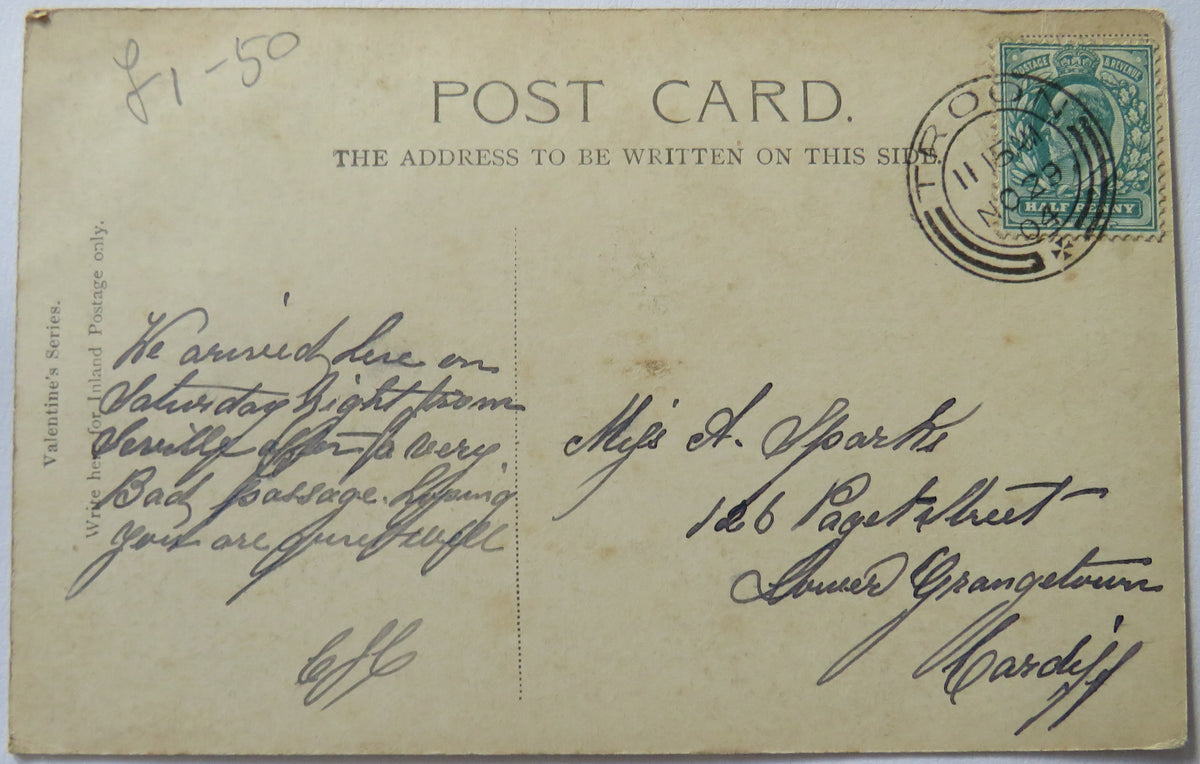 £1-50
POST CARD.
THE ADDRESS TO BE WRITTEN ON THIS SIDE.
POSTAGE & REVENUE
HALF PENNY
TROON
11 15 M
NO 29
04
Valentine's Series.
Write here for Inland Postage only.
We arrived here on
Saturday Night from
Seville after a very
Bad passage. Hoping
you are quite well
Miss A. Sparks
126 Paget Street
Lower Grangetown
Cardiff